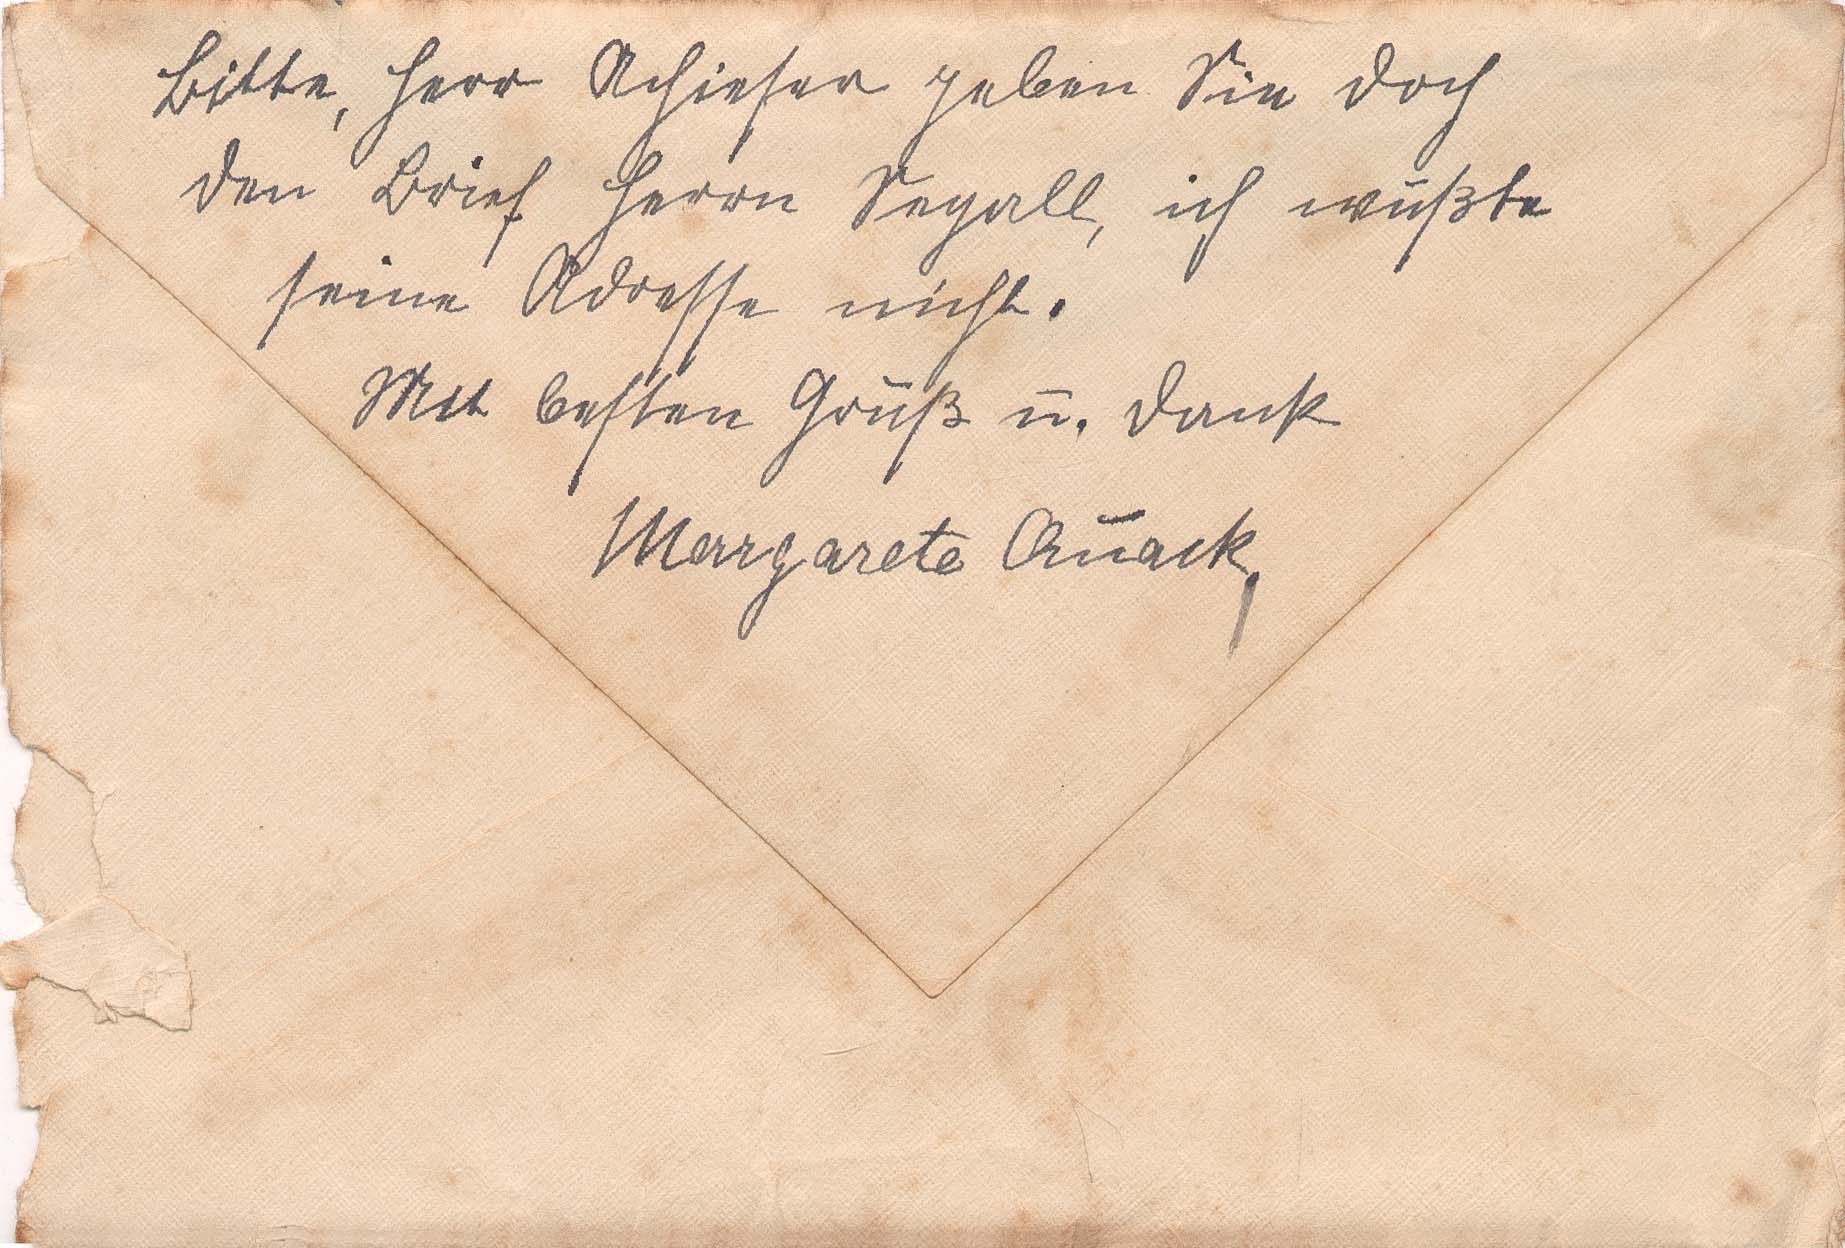 Bitte, Herr Achieser geben Sie doch
den Brief Herrn Segall, ich wußte
seine Adresse nicht.
Mit besten Gruß u. Dank
Margarete Quack,